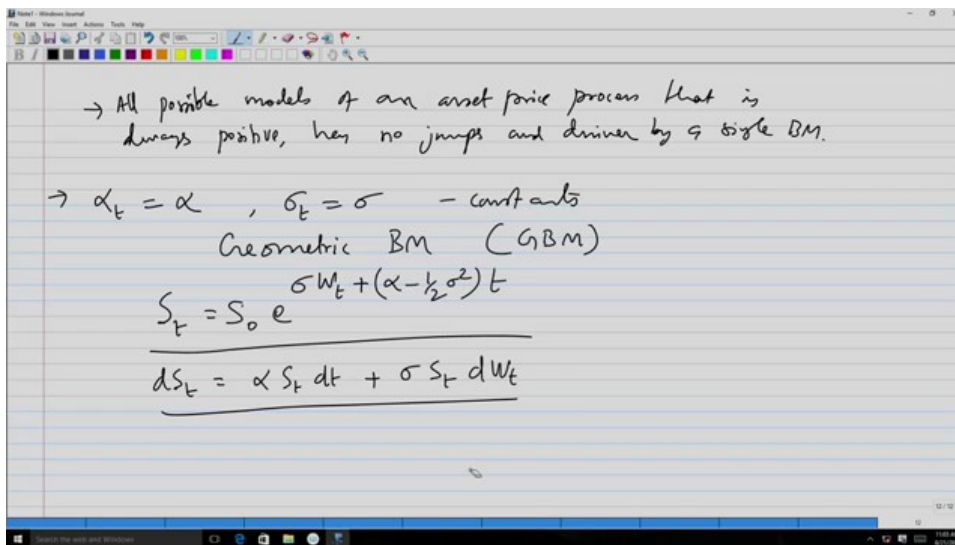 Note1 - Windows Journal
File Edit View Insert Actions Tools Help
→ All possible models of an asset price process that is
always positive, has no jumps and driven by a single BM.
→ αₜ = α , σₜ = σ - constants
Geometric BM (GBM)
Sₜ = S₀ e^{σWₜ + (α - ½σ²)t}
dSₜ = α Sₜ dt + σ Sₜ dWₜ
12/12
12
Search the web and Windows